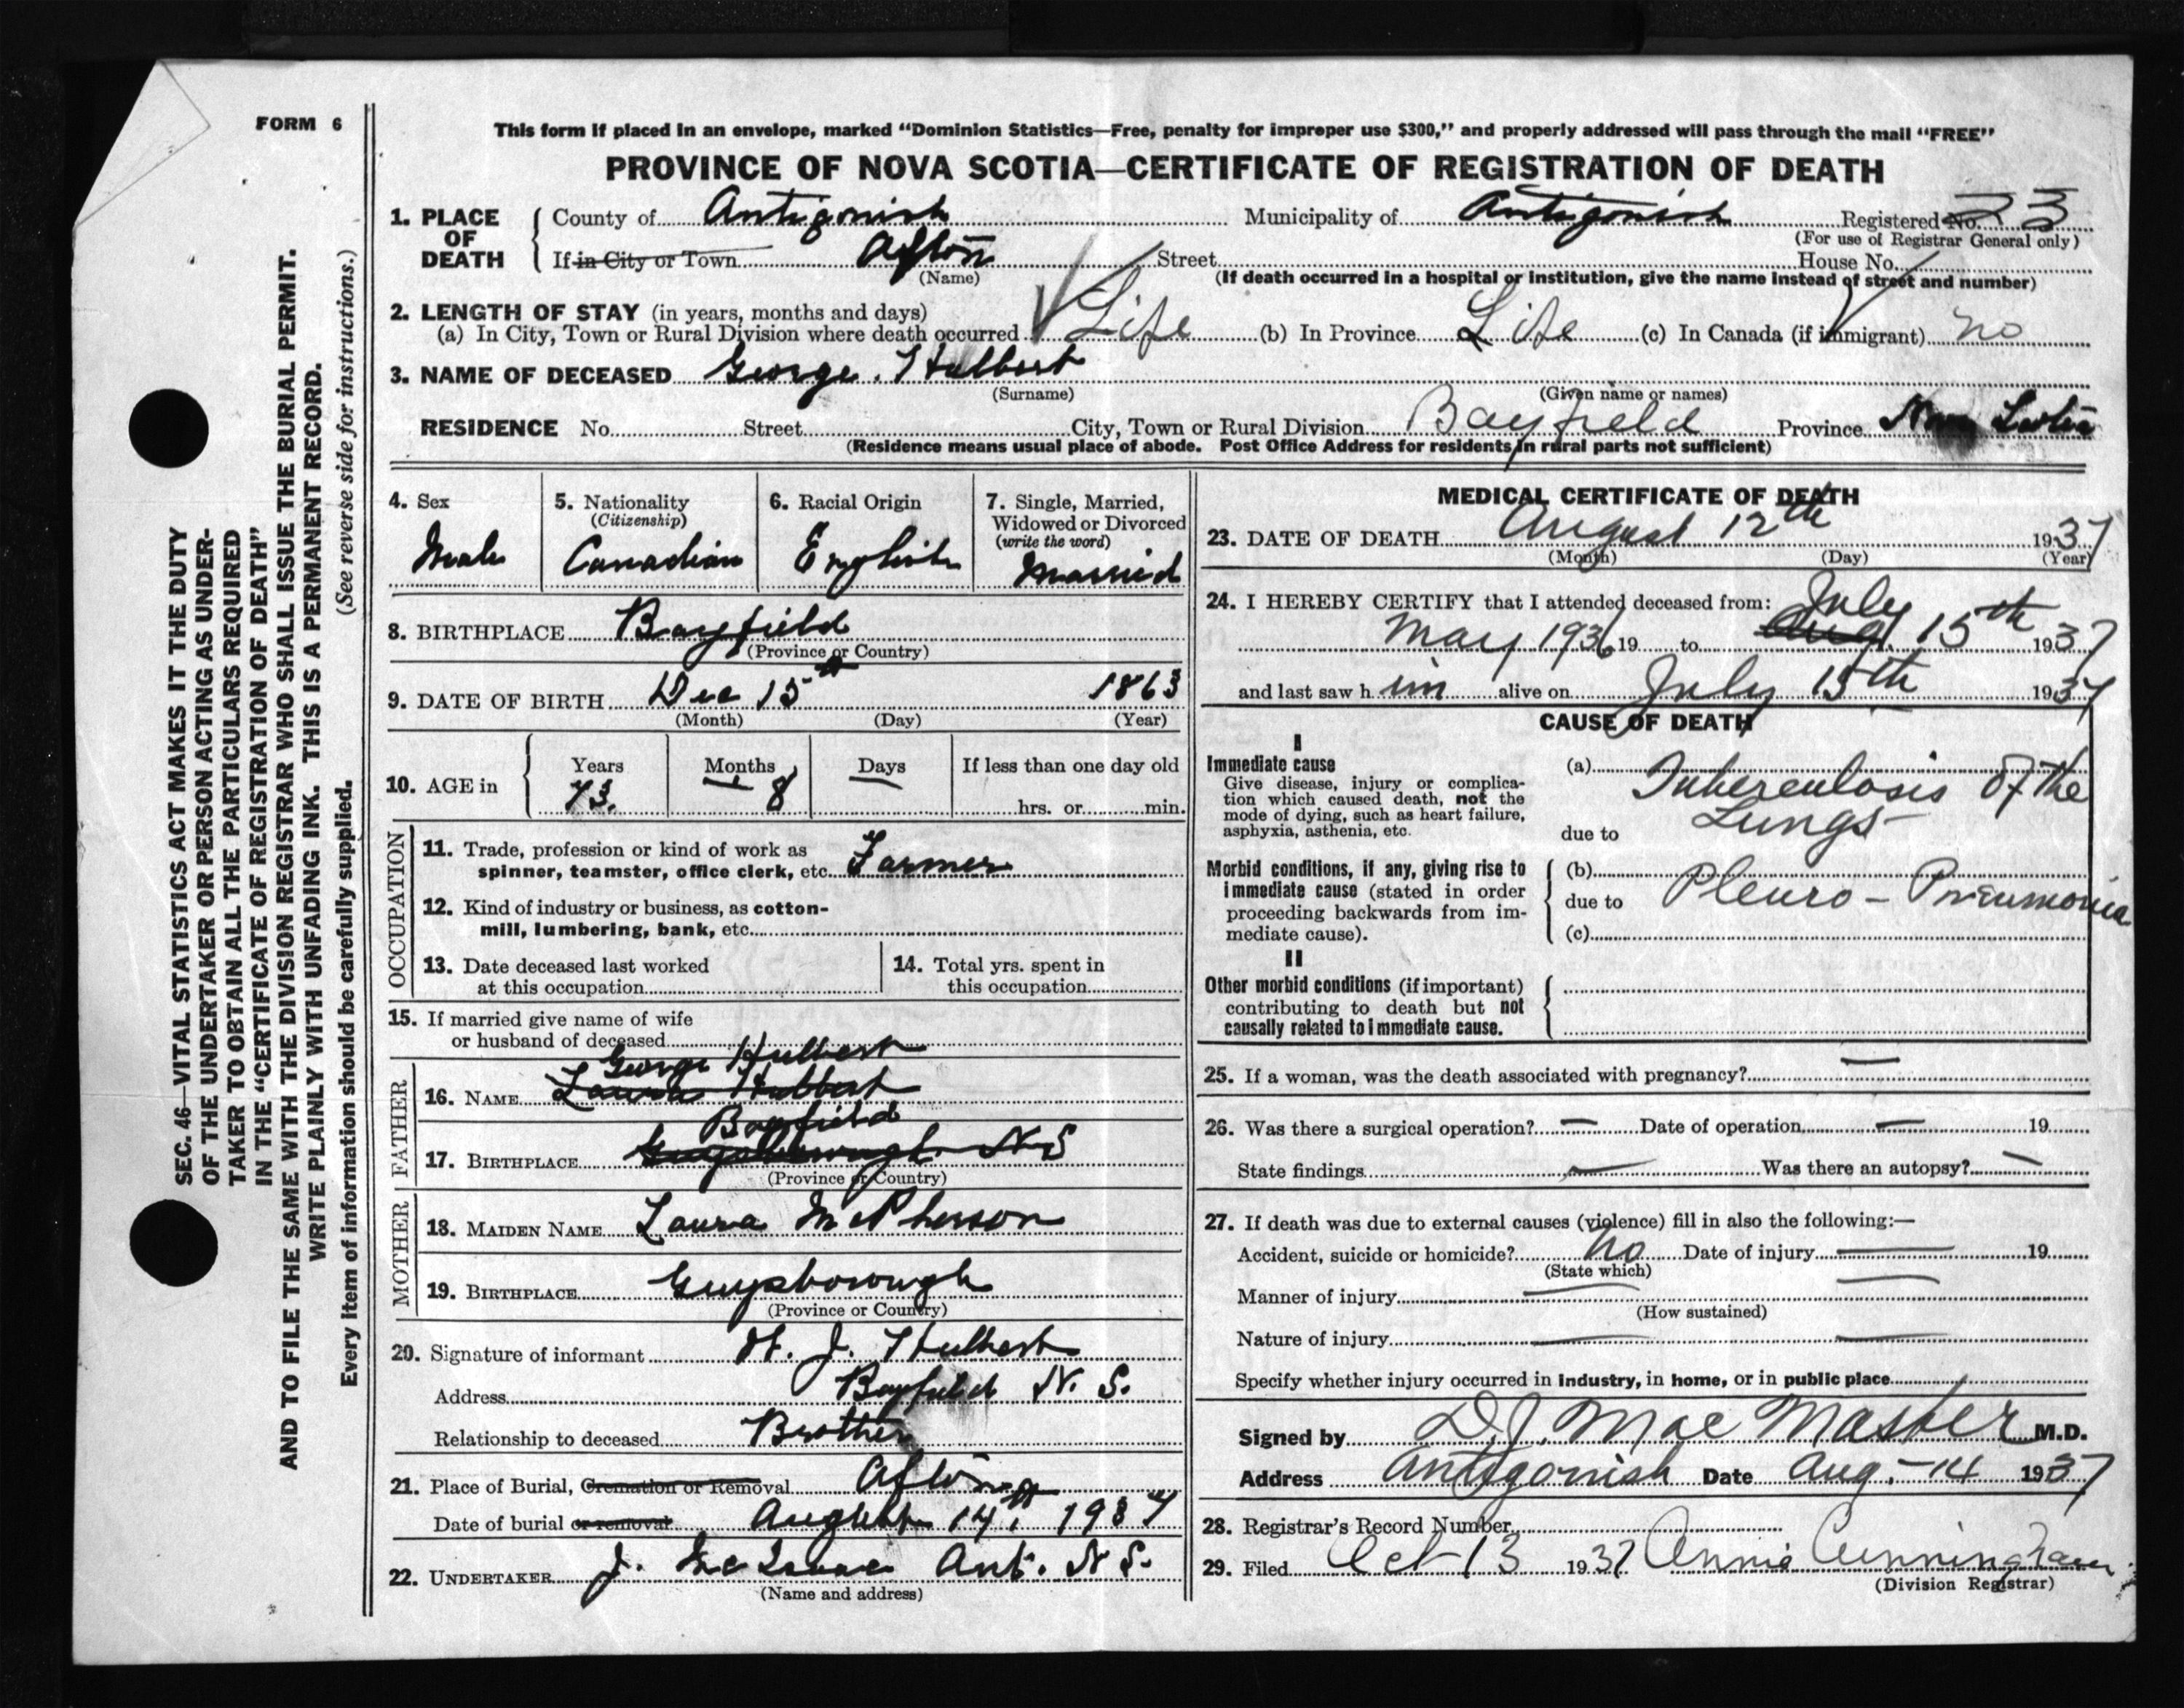 FORM 6
SEC. 46—VITAL STATISTICS ACT MAKES IT THE DUTY
OF THE UNDERTAKER OR PERSON ACTING AS UNDER-
TAKER TO OBTAIN ALL THE PARTICULARS REQUIRED
IN THE "CERTIFICATE OF REGISTRATION OF DEATH"
AND TO FILE THE SAME WITH THE DIVISION REGISTRAR WHO SHALL ISSUE THE BURIAL PERMIT.
WRITE PLAINLY WITH UNFADING INK. THIS IS A PERMANENT RECORD.
Every item of information should be carefully supplied. (See reverse side for instructions.)
This form if placed in an envelope, marked "Dominion Statistics—Free, penalty for improper use $300," and properly addressed will pass through the mail "FREE"
PROVINCE OF NOVA SCOTIA—CERTIFICATE OF REGISTRATION OF DEATH
1. PLACE OF DEATH
County of Antigonish Municipality of Antigonish Registered No. 23
(For use of Registrar General only)
If in City or Town Afton Street House No.
(Name) (If death occurred in a hospital or institution, give the name instead of street and number)
2. LENGTH OF STAY (in years, months and days)
(a) In City, Town or Rural Division where death occurred Life (b) In Province Life (c) In Canada (if immigrant) no
3. NAME OF DECEASED George. Hulbert
(Surname) (Given name or names)
RESIDENCE No. Street City, Town or Rural Division Bayfield Province Nova Scotia
(Residence means usual place of abode. Post Office Address for residents in rural parts not sufficient)
4. Sex
Male
5. Nationality
(Citizenship)
Canadian
6. Racial Origin
English
7. Single, Married,
Widowed or Divorced
(write the word)
Married
8. BIRTHPLACE Bayfield
(Province or Country)
9. DATE OF BIRTH Dec 15th 1863
(Month) (Day) (Year)
10. AGE in
Years Months Days If less than one day old
73. — 8 — hrs. or min.
OCCUPATION
11. Trade, profession or kind of work as
spinner, teamster, office clerk, etc. Farmer
12. Kind of industry or business, as cotton-
mill, lumbering, bank, etc.
13. Date deceased last worked
at this occupation
14. Total yrs. spent in
this occupation
15. If married give name of wife
or husband of deceased
FATHER
George Hulbert
16. NAME Laura Hulbert
Bayfield
17. BIRTHPLACE Guysborough N S
(Province or Country)
MOTHER
18. MAIDEN NAME Laura McPherson
19. BIRTHPLACE Guysborough
(Province or Country)
20. Signature of informant H. J. Hulbert
Address Bayfield N. S.
Relationship to deceased Brother
21. Place of Burial, Cremation or Removal Afton
Date of burial or removal August 14th 1937
22. UNDERTAKER J. McIsaac Ant. N S.
(Name and address)
MEDICAL CERTIFICATE OF DEATH
23. DATE OF DEATH August 12th 1937
(Month) (Day) (Year)
24. I HEREBY CERTIFY that I attended deceased from: July
May 1936 19 to Aug. 15th 1937
and last saw him alive on July 15th 1937
CAUSE OF DEATH
I
Immediate cause
Give disease, injury or complica-
tion which caused death, not the
mode of dying, such as heart failure,
asphyxia, asthenia, etc.
(a) Tuberculosis of the
Lungs
due to
Morbid conditions, if any, giving rise to
immediate cause (stated in order
proceeding backwards from im-
mediate cause).
(b)
due to Pleuro-Pneumonia
(c)
II
Other morbid conditions (if important)
contributing to death but not
causally related to immediate cause.
25. If a woman, was the death associated with pregnancy? —
26. Was there a surgical operation? — Date of operation — 19
State findings — Was there an autopsy? —
27. If death was due to external causes (violence) fill in also the following:—
Accident, suicide or homicide? No Date of injury — 19
(State which)
Manner of injury — —
(How sustained)
Nature of injury — —
Specify whether injury occurred in industry, in home, or in public place
Signed by D.J. MacMaster M.D.
Address Antigonish Date Aug.-14 1937
28. Registrar's Record Number
29. Filed Oct 13 1937 Annie Cunningham
(Division Registrar)